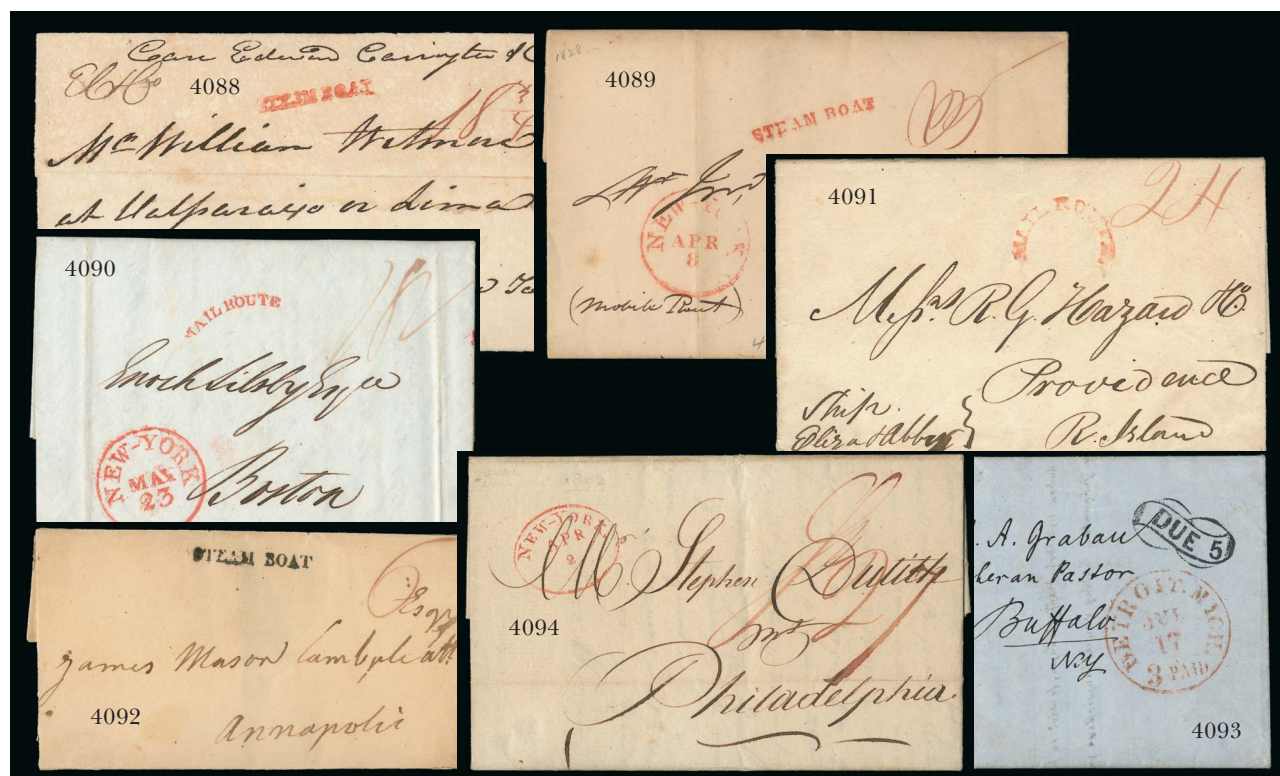 4088
STEAM BOAT
18 3/4
William Wetmore
at Valparaiso or Lima
4089
1828
STEAM BOAT
NEW-YORK
APR
8
(Mobile Rout)
4
4091
24
MAIL ROUTE
Messrs. R. G. Hazard & Co.
Providence
R. Island
Ship.
Eliza & Abby
4090
18
MAIL ROUTE
Enoch Silsby Esqr
NEW-YORK
MAY
23
Boston
4092
STEAM BOAT
Esqr
James Mason Campbell att
Annapolis
4094
NEW-YORK
APR
8
Mr. Stephen Dutilh
mt
Philadelphia.
DUE 5
. A. Grabau
heran Pastor
Buffalo
N.Y
DETROIT. MICH.
JUL
17
3 PAID
4093